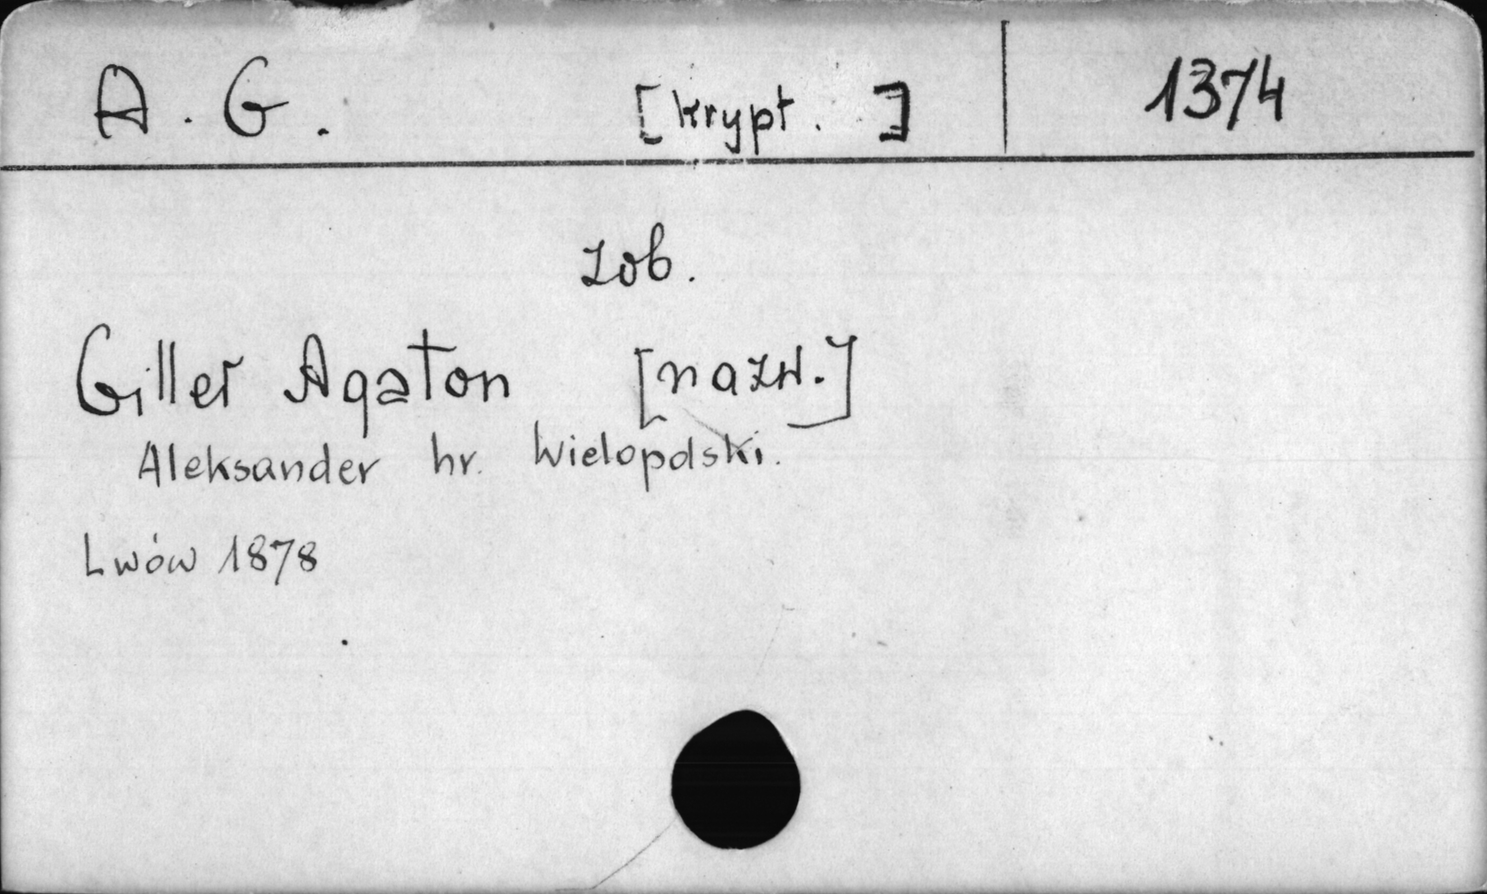 A. G. [krypt. ] 1374
zob.
Giller Agaton [nazw.]
Aleksander hr. Wielopolski.
Lwów 1878